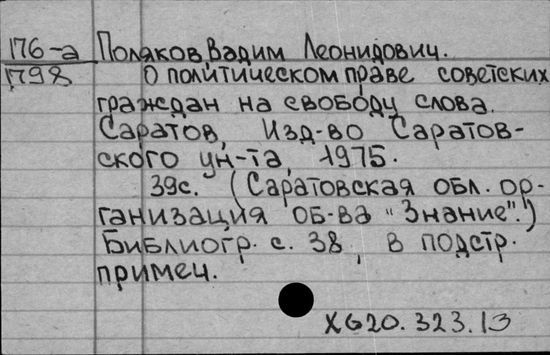 176-а Поляков, Вадим Леонидович.
1798 О политическом праве советских
граждан на свободу слова.
Саратов, Изд-во Саратов-
ского ун-та, 1975.
39с. (Саратовская обл. ор-
ганизация об-ва "Знание".)
Библиогр. с. 38, в подстр.
примеч.
XG20.323.13